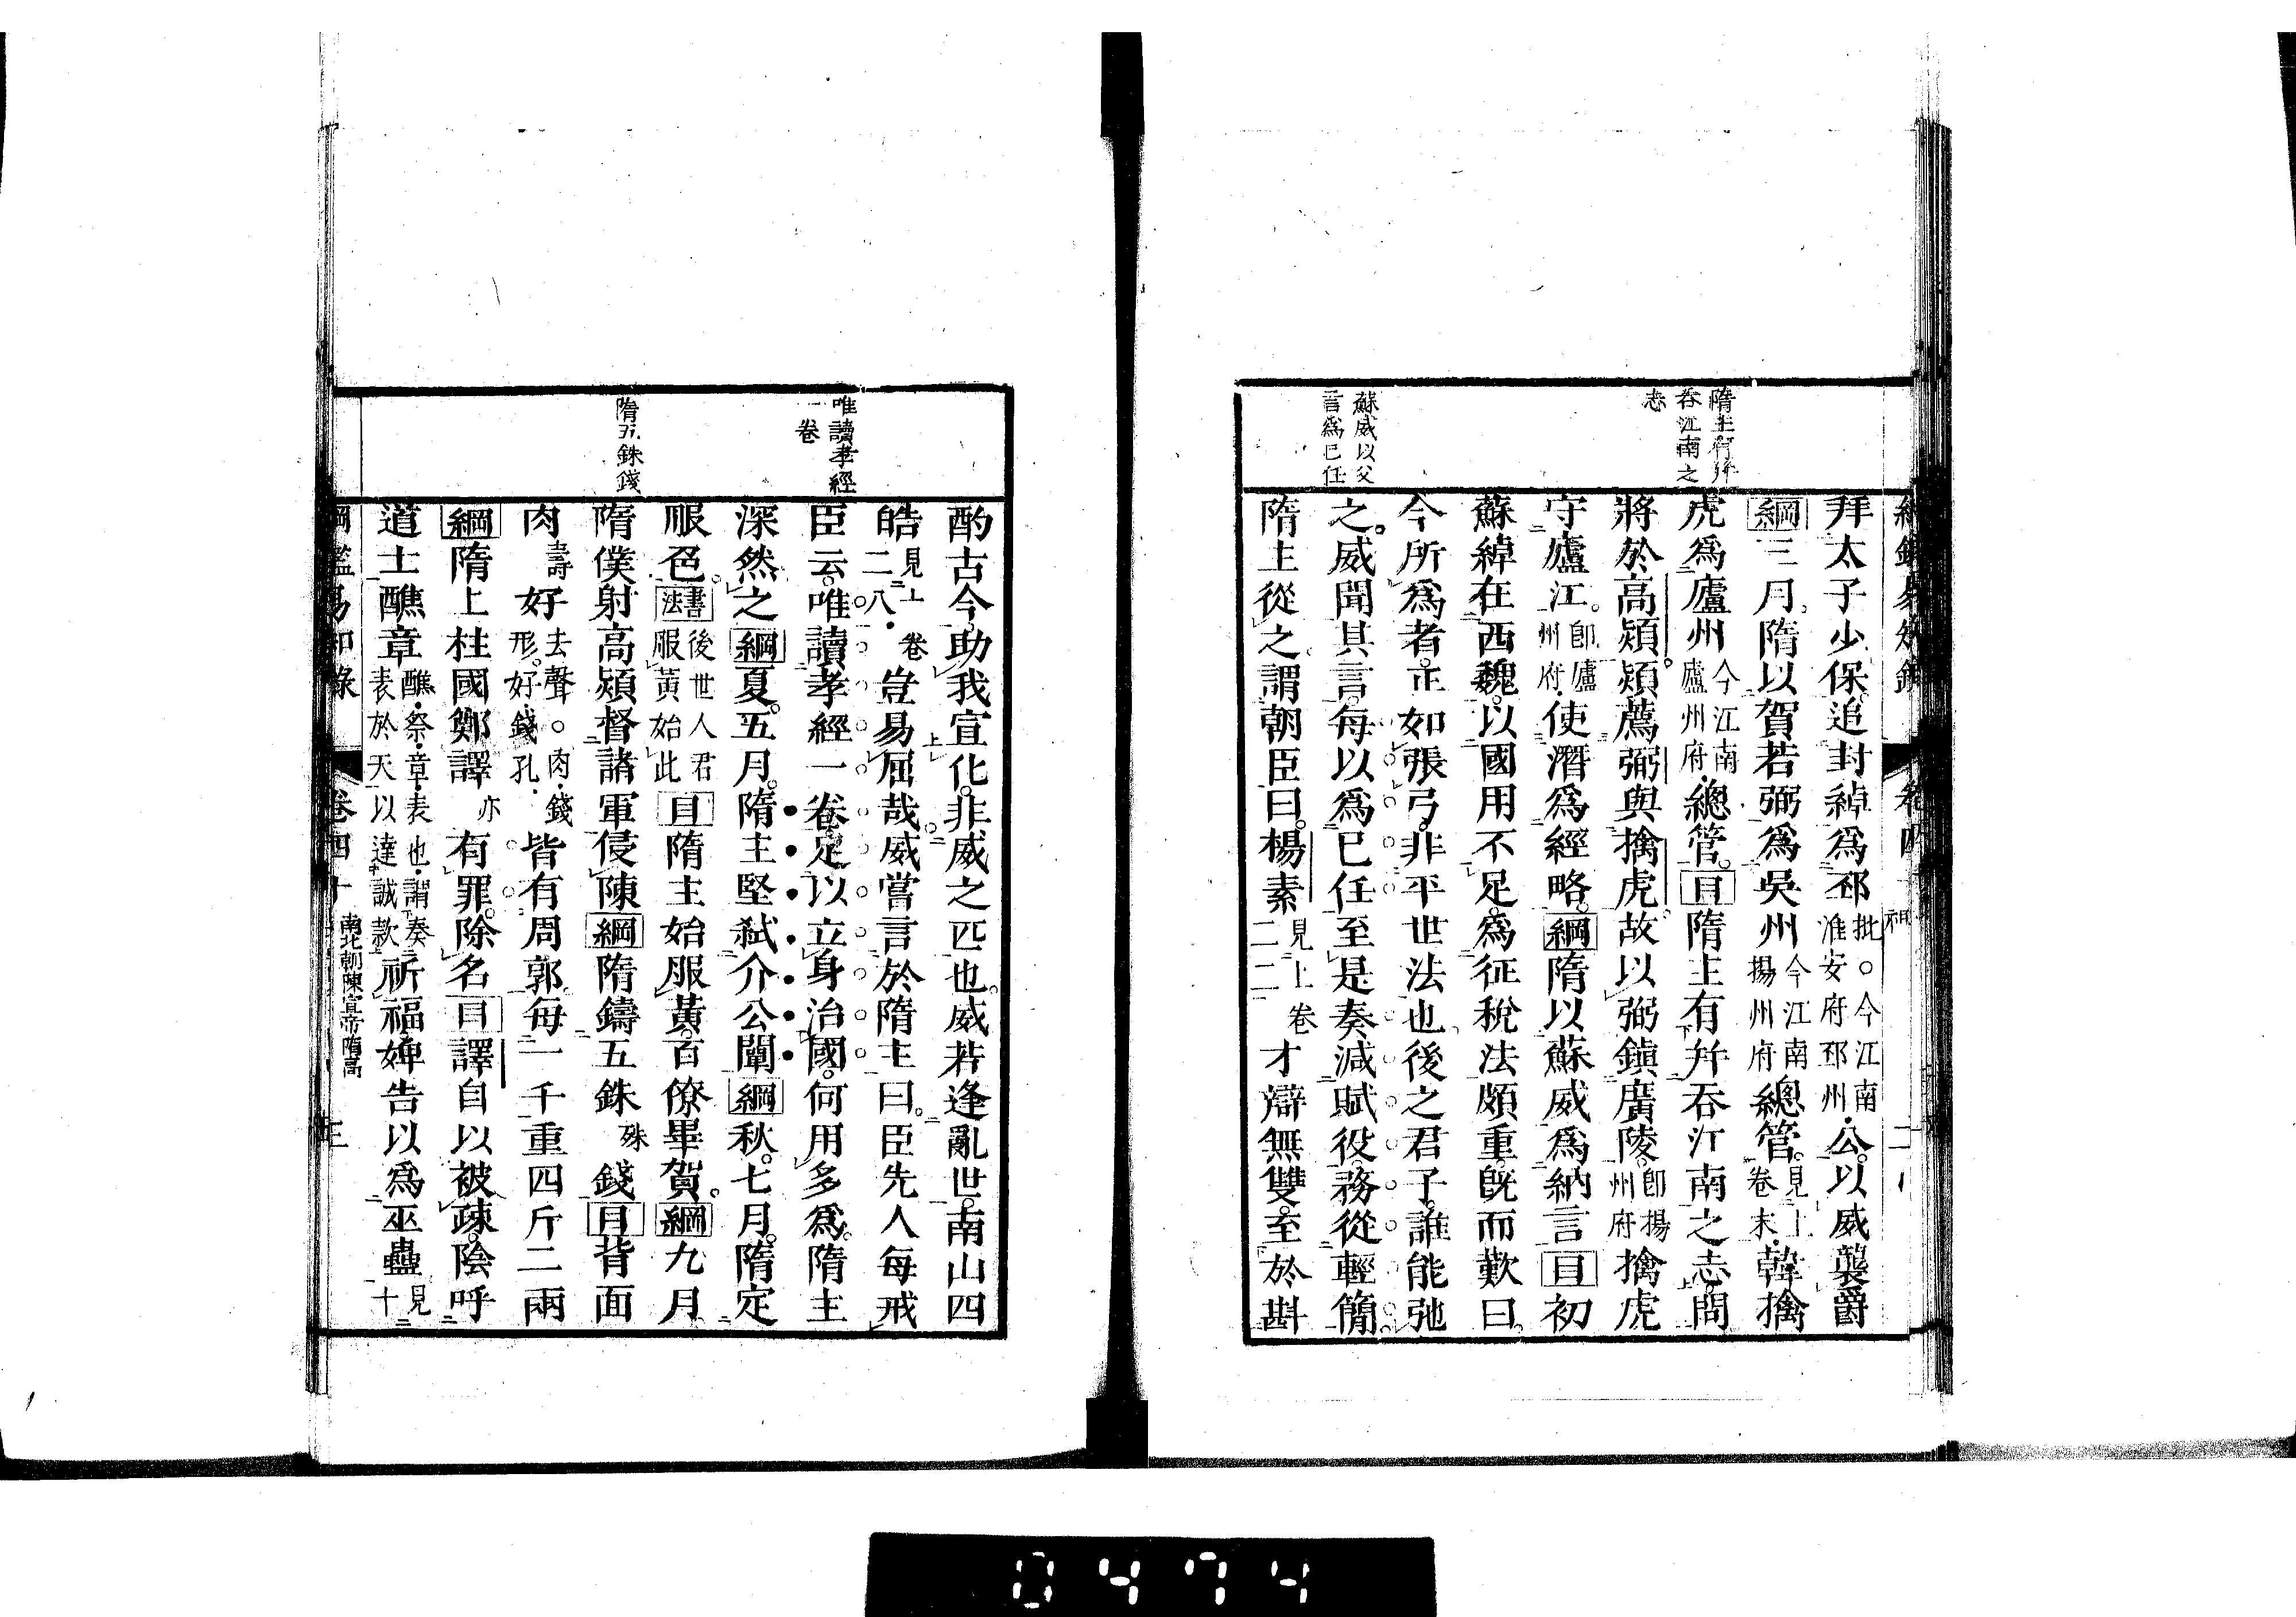 隋主有幷
吞江南之
志
蘇威以父
言爲已任
拜太子少保追封綽爲邳批○今江南淮安府邳州公以威襲爵
綱三月隋以賀若弼爲吳州今江南揚州府總管見上卷末韓擒
虎爲廬州今江南廬州府總管目隋主有幷吞江南之志問
將於高熲熲薦弼與擒虎故以弼鎮廣陵卽揚州府擒虎
守廬江卽廬州府使潛爲經略綱隋以蘇威爲納言目初
蘇綽在西魏以國用不足爲征稅法頗重旣而歎曰
今所爲者正如張弓非平世法也後之君子誰能弛
之威聞其言每以爲已任至是奏減賦役務從輕簡
隋主從之謂朝臣曰楊素見上卷二二才辯無雙至於斟
唯讀孝經
一卷
隋五銖錢
酌古今助我宣化非威之匹也威若逢亂世南山四
皓見上卷二八豈易屈哉威嘗言於隋主曰臣先人每戒
臣云唯讀孝經一卷足以立身治國何用多爲隋主
深然之綱夏五月隋主堅弒介公闡綱秋七月隋定
服色書法後世人君服黃始此目隋主始服黃百僚畢賀綱九月
隋僕射高熲督諸軍侵陳綱隋鑄五銖殊錢目背面
肉壽好去聲○肉錢形好錢孔皆有周郭每一千重四斤二兩
綱隋上柱國鄭譯亦有罪除名目譯自以被疎陰呼
道士醮章醮祭章表也謂奏表於天以達誠款祈福婢告以爲巫蠱見十
綱鑑易知錄 卷四十 南北朝陳宣帝隋高 三
0474